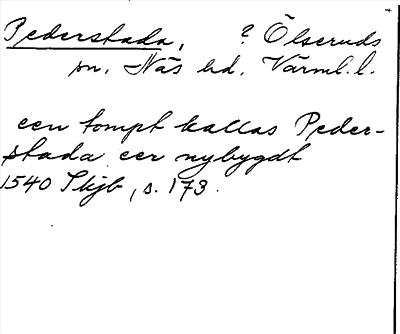 Pederstada, ? Ölseruds
sn, Näs hd, Värml. l.
een tompt kallas Peder-
stada eer nybygdt
1540 Skjb, s. 173.